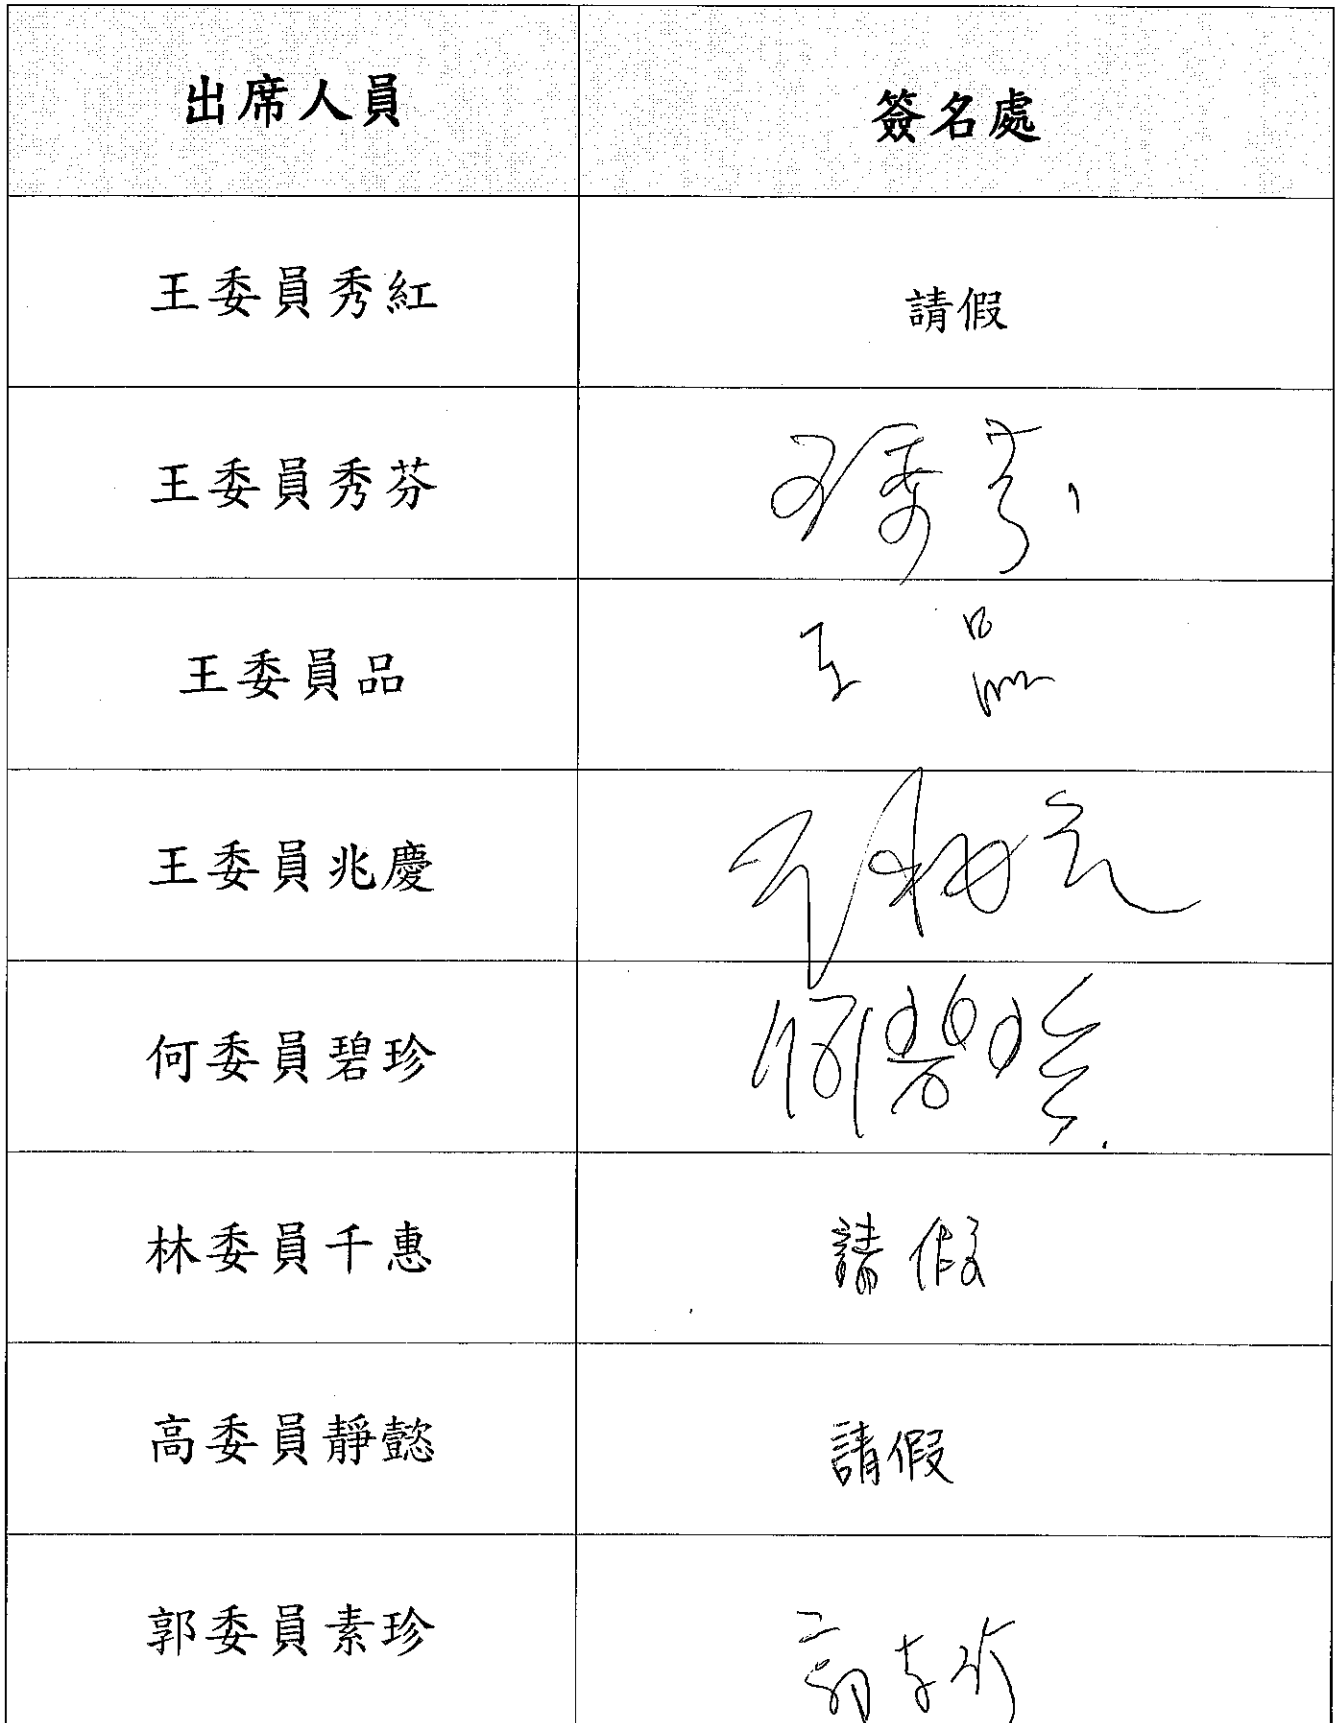 出席人員
簽名處
王委員秀紅
請假
王委員秀芬
王秀芬
王委員品
王品
王委員兆慶
何委員碧珍
何碧珍
林委員千惠
請假
高委員靜懿
請假
郭委員素珍